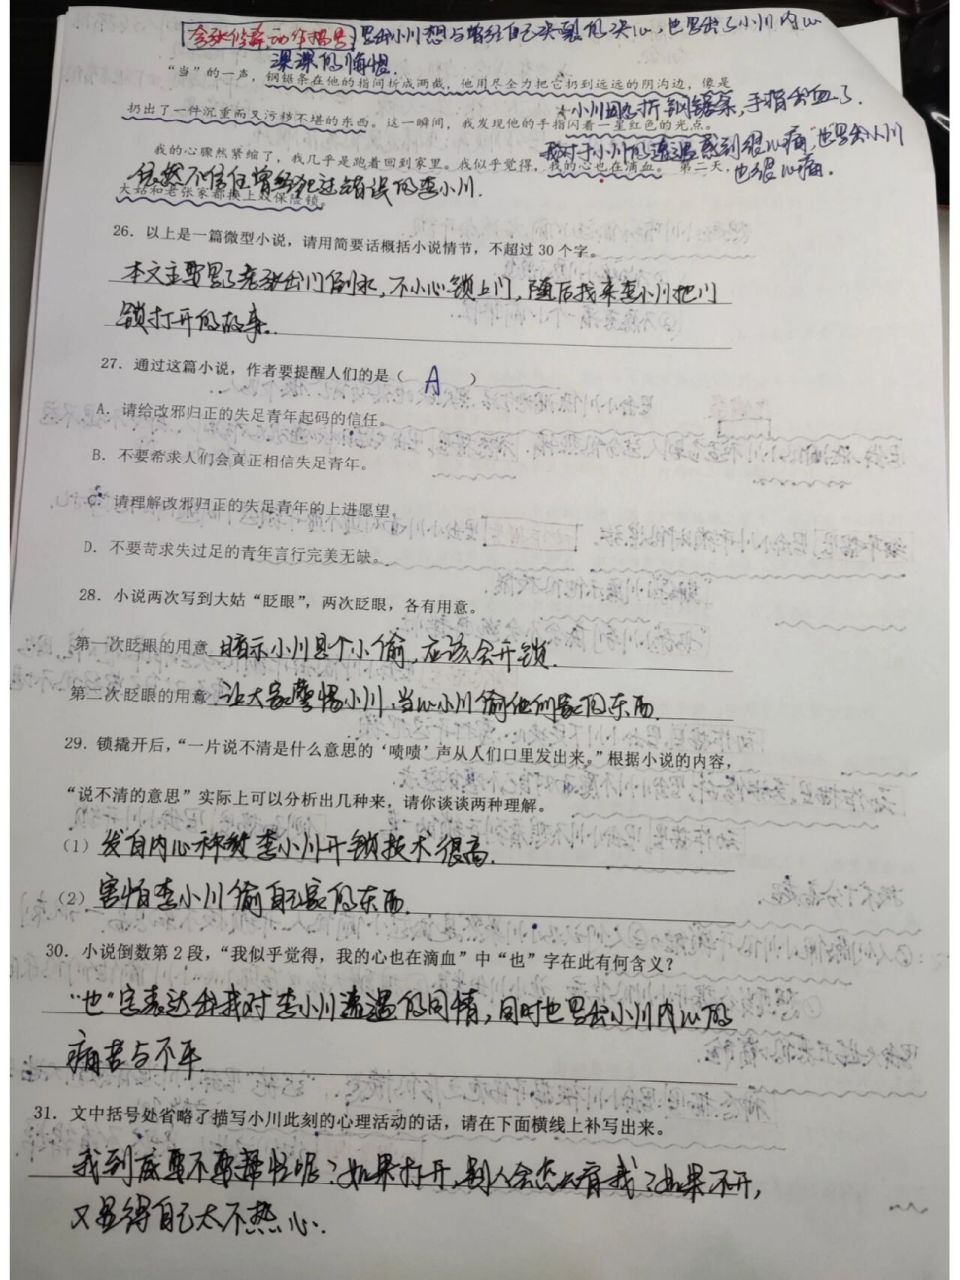 夸张修辞 动作描写 写出小川想与曾经自己决裂的决心,也写出了小川内心
深深的悔恨.
“当”的一声,钢锯条在他的指间折成两截,他用尽全力把它扔到远远的阴沟边,像是
扔出了一件沉重而又污秽不堪的东西。这一瞬间,我发现他的手指闪着一星红色的光点。
小川因为折钢锯条,手指出血了.
我的心骤然紧缩了,我几乎是跑着回到家里。我似乎觉得,我的心也在滴血。 第二天,
我对于小川的遭遇感到很心痛,也写出小川
也很心痛.
依然不信任曾经犯过错误的李小川.
大姑和老张家都换上双保险锁。
26.以上是一篇微型小说,请用简要话概括小说情节,不超过30个字。
本文主要写了老张出门倒水,不小心锁上门,随后找来李小川把门
锁打开的故事.
27.通过这篇小说,作者要提醒人们的是( A )
A.请给改邪归正的失足青年起码的信任。
B.不要希求人们会真正相信失足青年。
C.请理解改邪归正的失足青年的上进愿望。
D.不要苛求失过足的青年言行完美无缺。
28.小说两次写到大姑“眨眼”,两次眨眼,各有用意。
第一次眨眼的用意 暗示小川是个小偷,应该会开锁.
第二次眨眼的用意 让大家警惕小川,当心小川偷他们家的东西.
29.锁撬开后,“一片说不清是什么意思的‘啧啧’声从人们口里发出来。”根据小说的内容,
“说不清的意思”实际上可以分析出几种来,请你谈谈两种理解。
(1) 发自内心称赞李小川开锁技术很高.
(2) 害怕李小川偷自己家的东西.
30.小说倒数第2段,“我似乎觉得,我的心也在滴血”中“也”字在此有何含义?
“也”字表达出我对李小川遭遇的同情,同时也写出小川内心的
痛苦与不平.
31.文中括号处省略了描写小川此刻的心理活动的话,请在下面横线上补写出来。
我到底要不要帮忙呢?如果打开,别人会怎么看我?如果不开,
又显得自己太不热心.